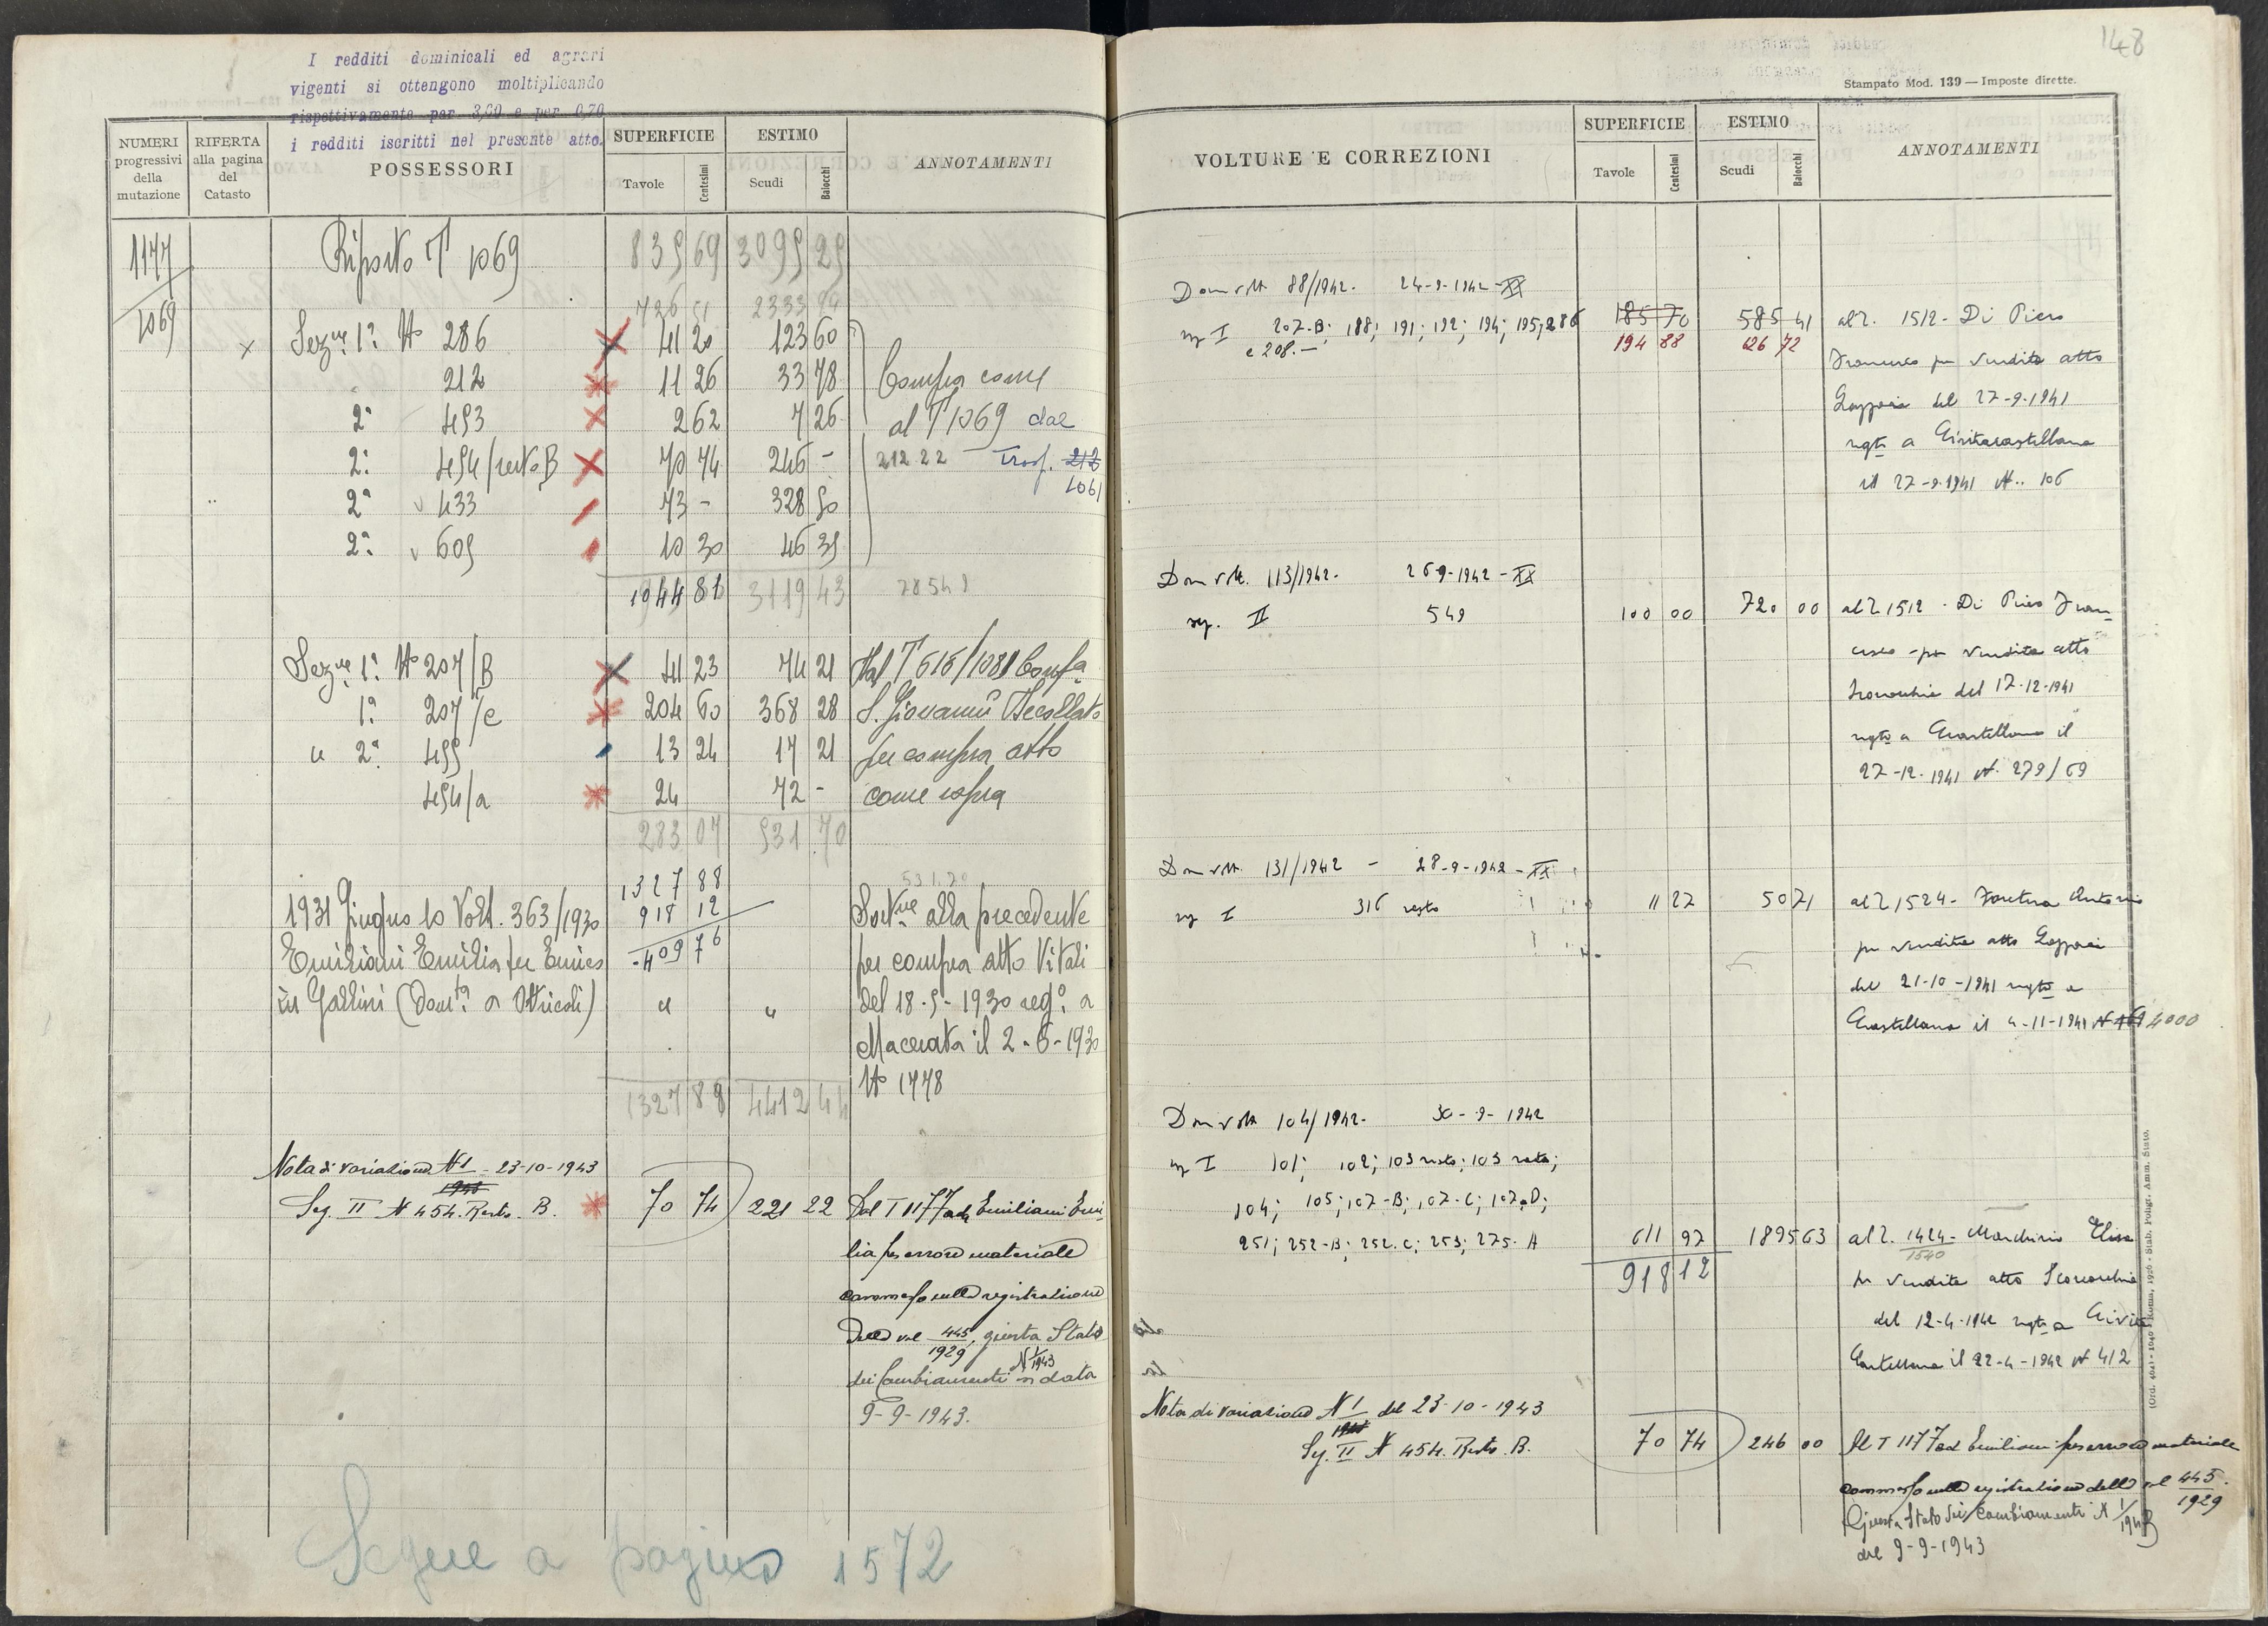 I redditi dominicali ed agrari
vigenti si ottengono moltiplicando
rispettivamente per 3,60 e per 0,70
i redditi iscritti nel presente atto.
NUMERI progressivi della mutazione
RIFERTA alla pagina del Catasto
POSSESSORI
SUPERFICIE
Tavole
Centesimi
ESTIMO
Scudi
Baiocchi
ANNOTAMENTI
1177
1069
Riporto T 1069 835 69 3095 25
726 51 2333 94
x Sez.ne 1ª No 286 41 20 123 60
212 11 26 33 78 Compra come
2ª 493 2 62 7 26 al T 1069 dal
2ª 454/resto B 70 74 246 - 212 22 Trasf. 212
1061
2ª 433 73 - 328 50
2ª 605 10 30 46 35
1044 81 3119 43 78549
Sez.ne 1ª No 207/B 41 23 74 21 Dal T 616/1081 Conf.a
1ª 207/c 204 60 368 28 S. Giovanni Decollato
" 2ª 455 13 24 17 21 per compra atto
454/a 24 72 - come sopra
283 07 531 70
1327 88 531.70
1931 Giugno 10 Volt. 363/1930 918 12 alla precedente
Emiliani Emilia fu Enrico - 409 76 per compra atto Vitali
in Gallini (Dom.ta a Otricoli) " " del 18-5-1930 reg.o a
Macerata il 2-6-1930
No 1778
1327 88 4412 44
Nota di variazione N 1 - 23-10-1943
1943
Sez. II N 454. Resto. B. 70 74 221 22 Dal T 1177 Emiliani Emi-
lia per errore materiale
commesso nella registrazione
della vol 445/1929, giusta Stato
dei Cambiamenti N 1/1943 in data
9-9-1943.
Segue a pagina 1572
148
Stampato Mod. 139 — Imposte dirette.
VOLTURE E CORREZIONI
SUPERFICIE
Tavole
Centesimi
ESTIMO
Scudi
Baiocchi
ANNOTAMENTI
Dom volt. 88/1942. 24-9-1942-XX
sez I 207-B; 188; 191; 192; 194; 195; 286 185 70 585 41 al T. 1512 - Di Piero
e 208.— 194 88 626 72
Francesco per vendita atto
del 27-9-1941
regto a Civitacastellana
il 27-9-1941 N. 106
Dom volt. 113/1942. 26-9-1942-XX
sez. II 549 100 00 720 00 al T 1512 - Di Piero Fran-
cesco - per vendita atto
del 17-12-1941
regto a Ccastellana il
27-12-1941 N. 279/69
Dom volt. 131/1942 - 28-9-1942-XX
sez I 316 resto 11 27 50 71 al T 1524 - Antonio
per vendita atto
del 21-10-1941 regto a
Ccastellana il 4-11-1941 N 4000
Dom volt 104/1942. 30-9-1942
sez I 101; 102; 103 resto; 103 resto;
104; 105; 107-B; 107-C; 107-D;
251; 252-B; 252-C; 253; 275-A 611 97 1895 63 al T. 1424 - Elisa
1540
918 12 per vendita atto
del 12-4-1942 regto a Civita
Castellana il 22-4-1942 N 412
Nota di variazione N 1 del 23-10-1943
1943
Sez. II N 454. Resto. B. 70 74 246 00 Al T 1177 Emiliani per errore materiale
commesso nella registrazione della vol 445/1929
Giusta Stato dei Cambiamenti N 1/1943
del 9-9-1943